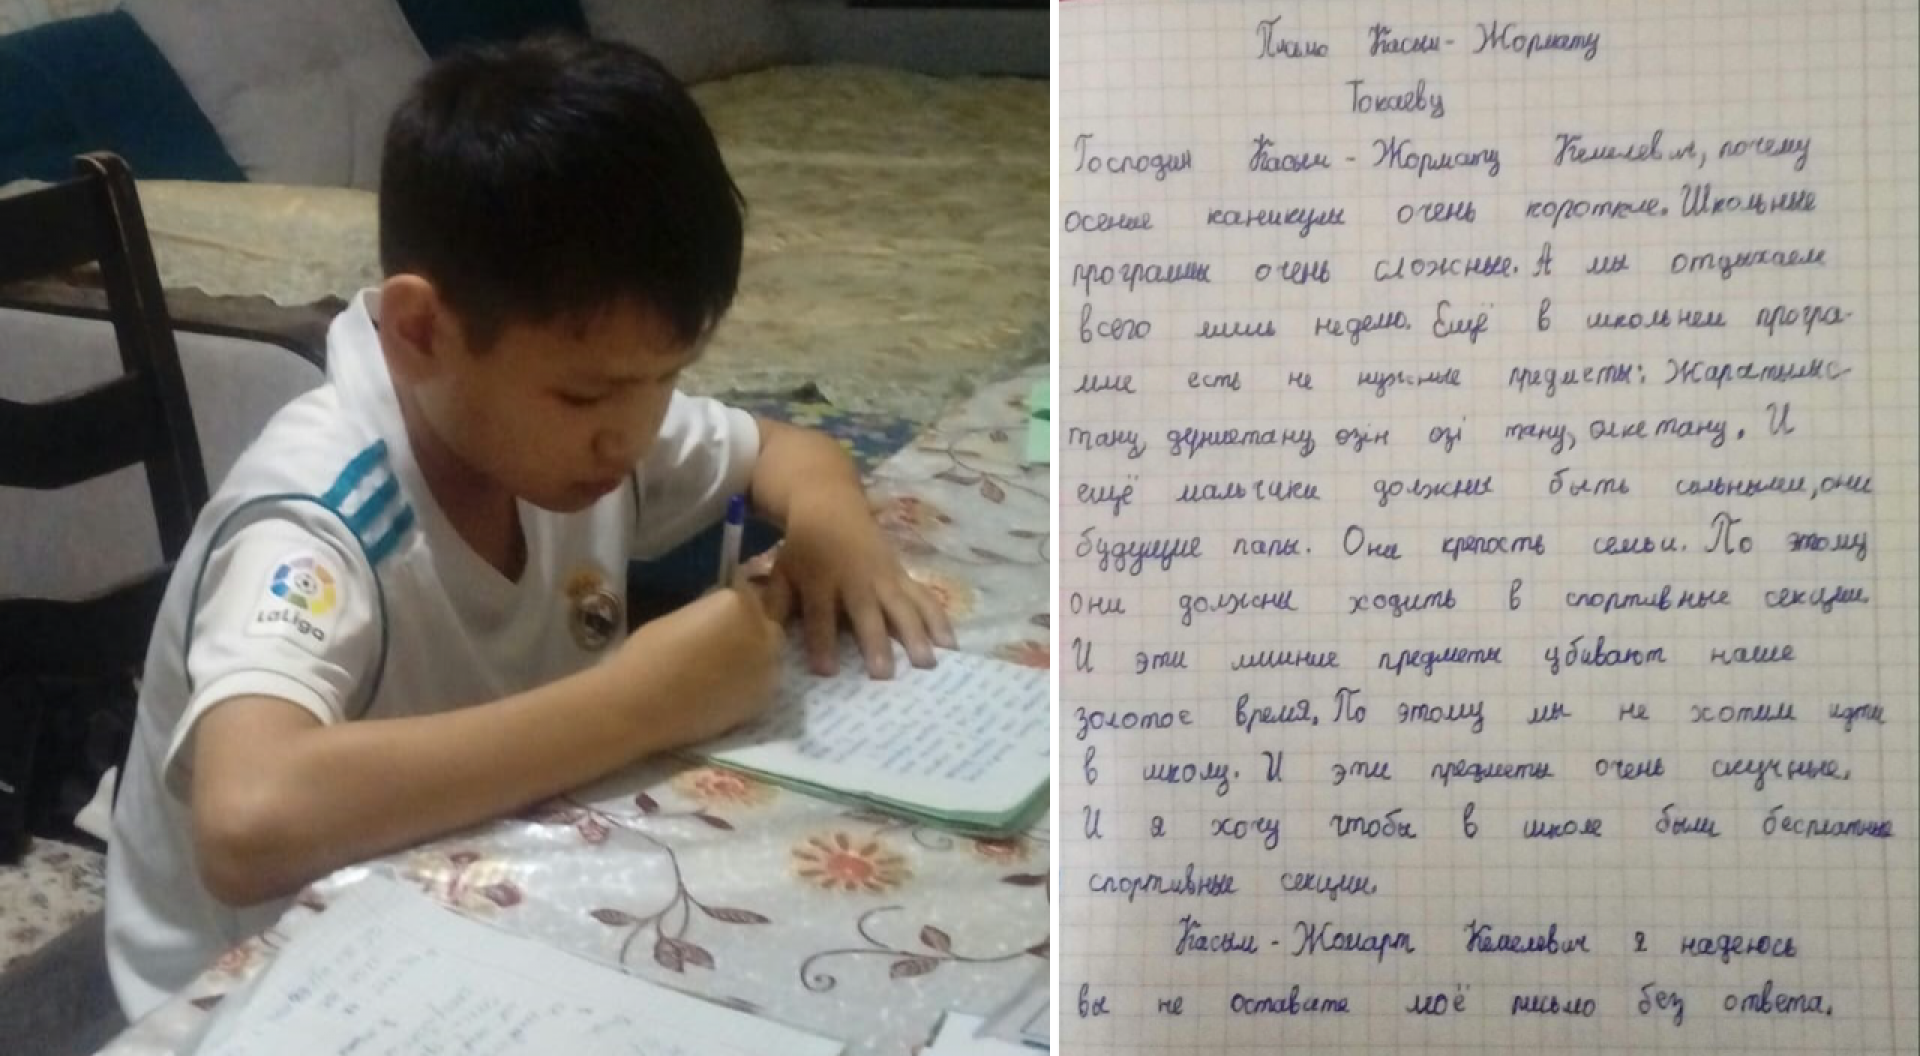 LaLiga
Писмо Касым-Жормату
Токаеву
Господин Касым-Жормату Кемелевич, почему
осение каникулы очень короткие. Школьные
програмы очень сложные. А мы отдыхаем
всего лишь неделю. Ещё в школьнем програ-
мме есть не нужные предметы: Жаратылыс-
тану, дуниетану, озін озі тану, олкетану. И
ещё мальчики должны быть сильными, они
будущие папы. Они крепость семьи. По этому
они должны ходить в спортивные секции.
И эти лишние предметы убивают наше
золотое время. По этому мы не хотим идти
в школу. И эти предметы очень скучные.
И я хочу чтобы в школе были бесплатные
спортивные секции.
Касым-Жомарт Кемелович я надеюсь
вы не оставите моё письмо без ответа.